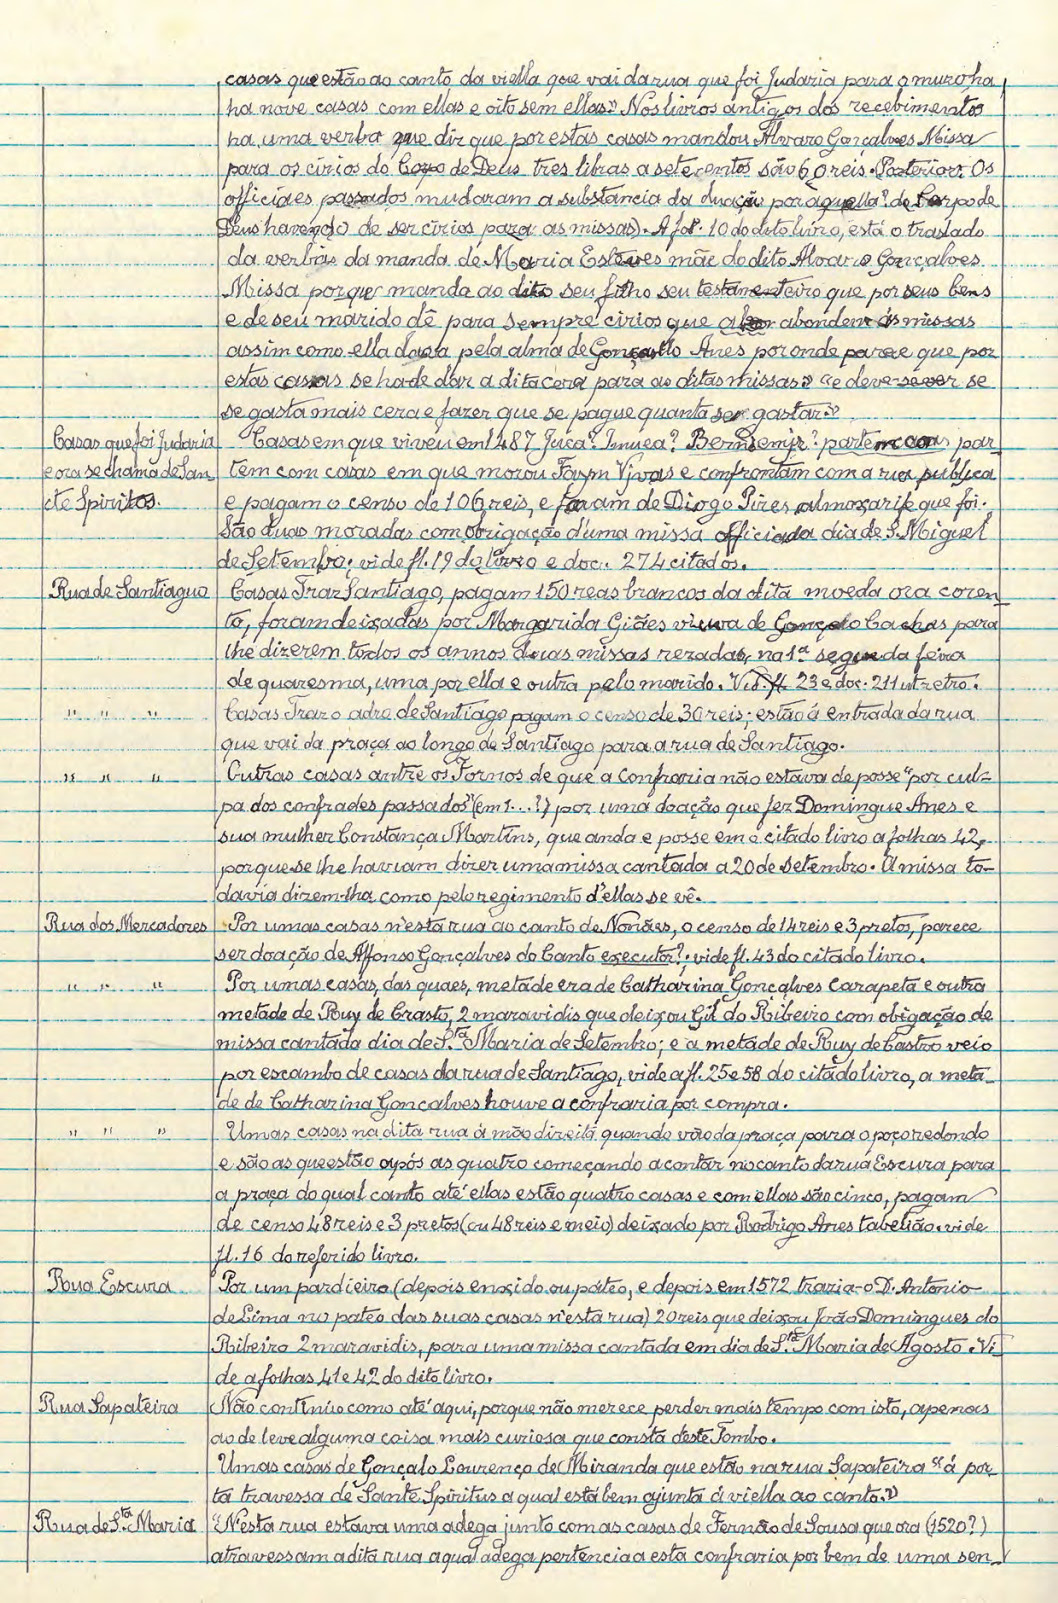 casas que estão ao canto da viella que vai da rua que foi Judaria para o muro, ha
ha nove casas com ellas e oito sem ellas.» Nos livros antigos dos recebimentos
ha uma verba que diz que por estas casas mandou Alvaro Gonçalves Missa
para os cirios do Corpo de Deus tres libras a setecentos são 60 reis. (Posterior: Os
officiaes passados mudaram a substancia da duação por aquella? de Corpo de
Deus havendo de ser cirios para as missas). A fol. 10 do dito livro, está o traslado
da verba da manda de Maria Esteves mãe do dito Alvaro Gonçalves
Missa porque manda ao dito seu filho seu testamenteiro que por seus bens
e de seu marido dê para sempre cirios que abondem ás missas
assim como ella dava pela alma de Gonçallo Anes por onde parece que por
estas casas se hade dar a dita cera para as ditas missas» «e deve-se ver se
se gasta mais cera e fazer que se pague quanta se gastar.»
Casas que foi Judaria Casas em que viveu em 1487 Juca? Inuea? par
e ora se chama de San tem com casas em que morou e confrontam com a rua publica
cte Spiritos. e pagam o censo de 106 reis, e foram de Diogo Pires almoxarife que foi.
São duas moradas com obrigação d'uma missa officiada dia de S. Miguel
de Setembro; vide fl. 19 do livro e doc. 274 citados.
Rua de Santiaguo Casas Traz Santiago, pagam 150 reas brancos da dita moeda ora coren
to, foram deixadas por Margarida Giães viuva de Gonçalo Cachas para
lhe dizerem todos os annos duas missas rezadas, na 1ª segunda feira
de quaresma, uma por ella e outra pelo marido. Vid. fl. 23 e doc. 211 ut retro.
" " " Casas Traz o adro de Santiago pagam o censo de 30 reis; estão á entrada da rua
que vai da praça ao longo de Santiago para a rua de Santiago.
" " " Outras casas antre os Fornos de que a confraria não estava de posse "por cul-
pa dos confrades passados" (em 1...?) por uma doação que fez Domingue Anes e
sua mulher Constança Martins, que anda e posse em o citado livro a folhas 42,
porque se lhe haviam dizer uma missa cantada a 20 de Setembro. A missa to-
davia dizem-lha como pelo regimento d'ellas se vê.
Rua dos Mercadores Por umas casas n'esta rua ao canto de Nonães, o censo de 14 reis e 3 pretos, parece
ser doação de Affonso Gonçalves do Canto executor?. vide fl. 43 do citado livro.
" " " Por umas casas, das quaes, metade era de Catharina Gonçalves Carapeta e outra
metade de Ruy de Crasto, 2 maravidis que deixou Gil do Ribeiro com obigação de
missa cantada dia de S.ta Maria de Setembro; e a metade de Ruy de Castro veio
por escambo de casas da rua de Santiago, vide a fl. 25 e 58 do citado livro, a meta-
de de Catharina Goncalves houve a confraria por compra.
" " " Umas casas na dita rua á mão direita quando vão da praça para o poço redondo
e são as que estão após as quatro começando a contar no canto da rua Escura para
a praça do qual canto até ellas estão quatro casas e com ellas são cinco, pagam
de censo 48 reis e 3 pretos (ou 48 reis e meio) deixado por Rodrigo Anes tabelião. vide
fl. 16 do referido livro.
Rua Escura Por um pardieiro (depois enxido ou páteo, e depois em 1572 trazia-o D. Antonio
de Lima no pateo das suas casas n'esta rua) 20 reis que deixou João Domingues do
Ribeiro 2 maravidis, para uma missa cantada em dia de S.ta Maria de Agosto. Vi-
de a folhas 41 e 42 do dito livro.
Rua Sapateira Não continúo como até aqui, porque não merece perder mais tempo com isto, apenas
ao de leve alguma coisa mais curiosa que consta deste Tombo.
Umas casas de Gonçalo Lourenço de Miranda que estão na rua Sapateira "á por-
ta travessa de Sante Spiritus a qual está bem ajunta á viella ao canto.»
Rua de S.ta Maria "Nesta rua estava uma adega junto com as casas de Fernão de Sousa que ora (1520?)
atravessam a dita rua a qual adega pertencia a esta confraria por bem de uma sen-